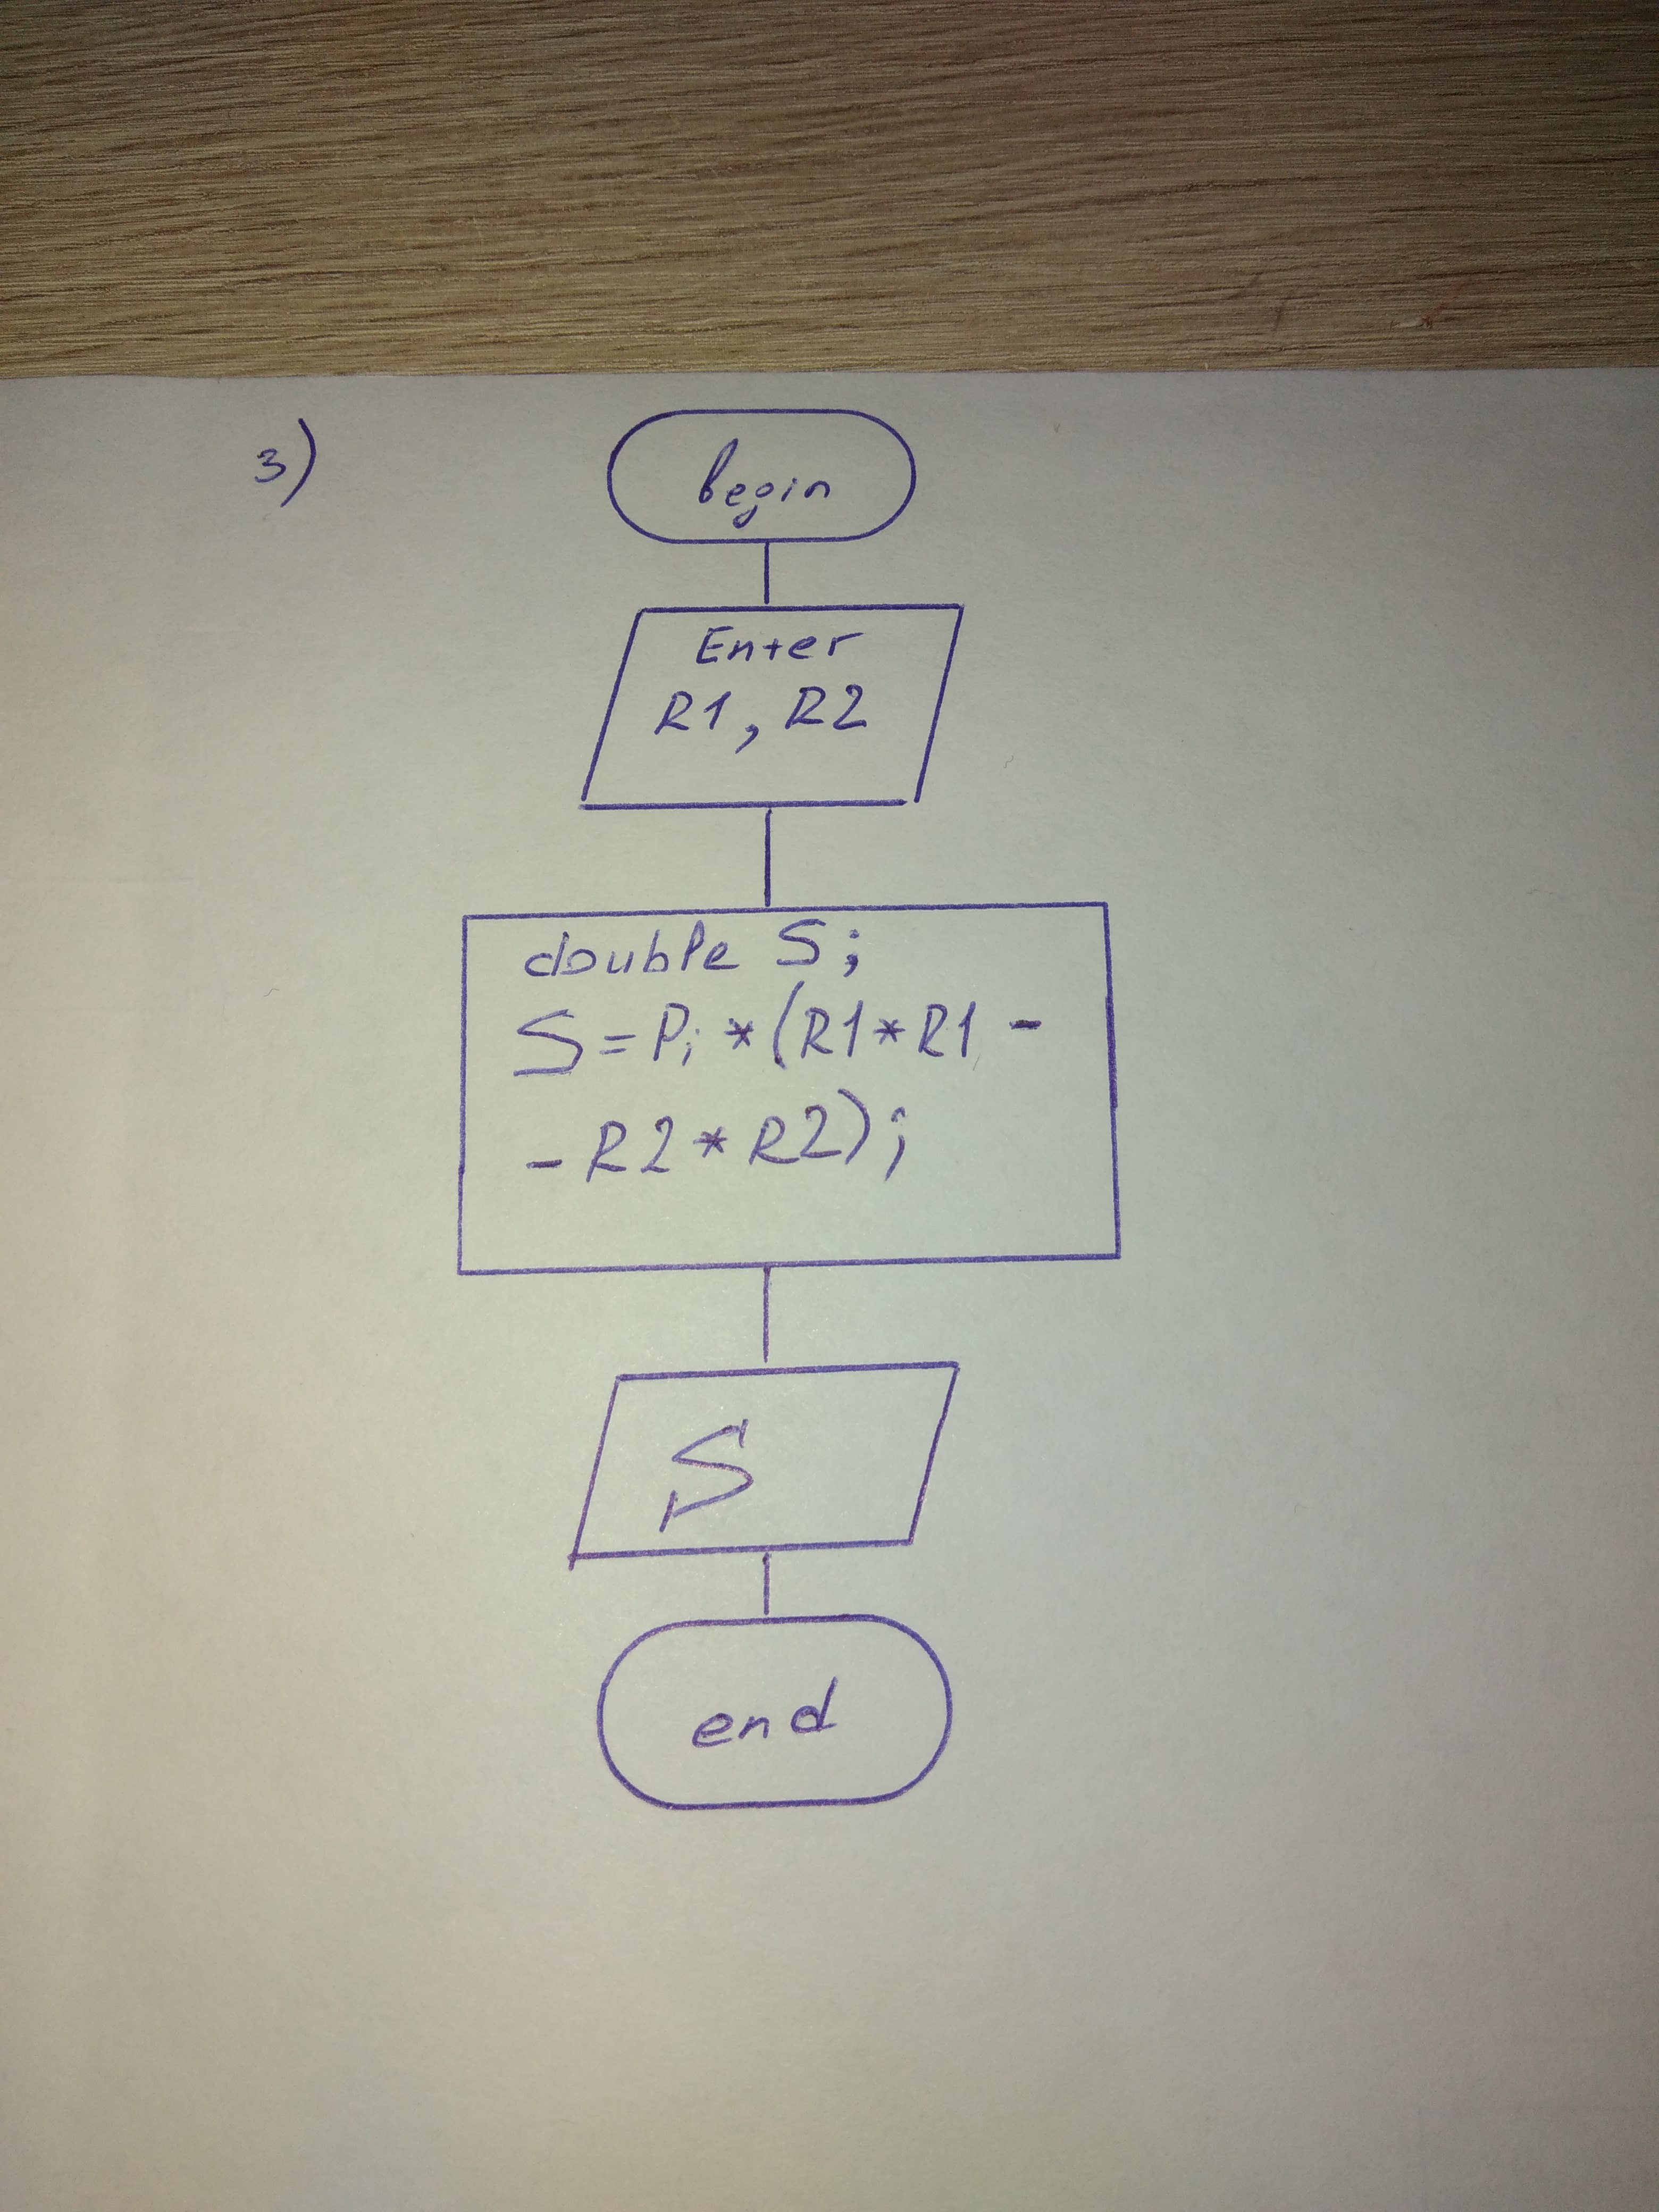 3)
begin
Enter
R1, R2
double S;
S=Pi*(R1*R1-
-R2*R2);
S
end